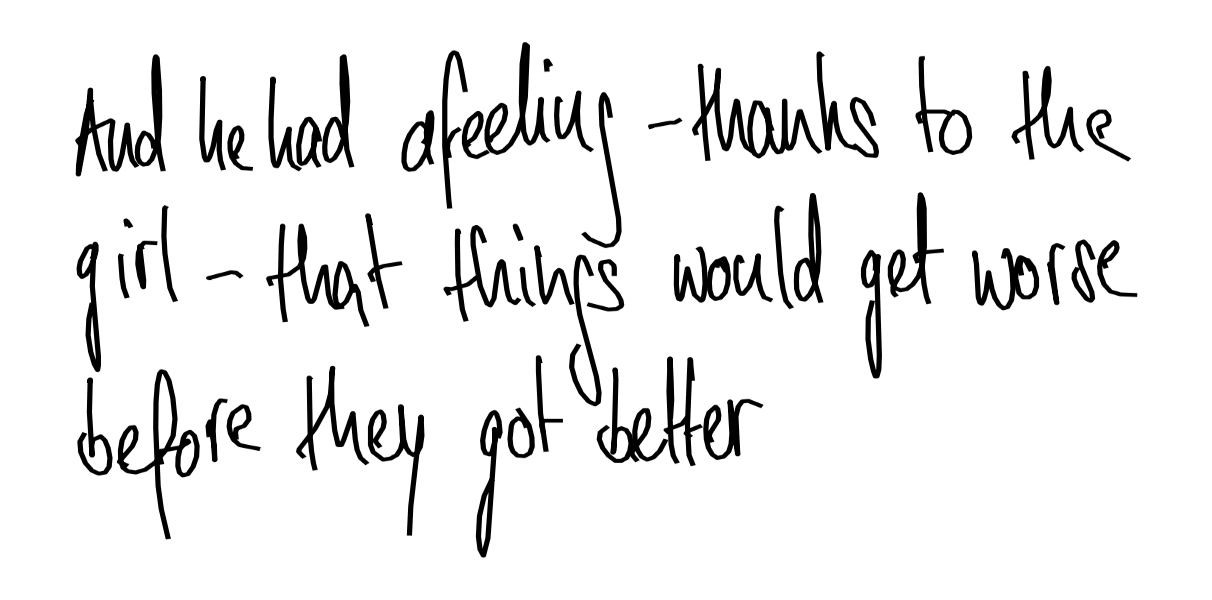 And he had a feeling - thanks to the
girl - that things would get worse
before they got better